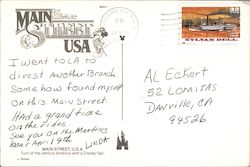 MAIN
STREET
USA
I went to LA to
direct Another Branch
Somehow found myself
on this Main Street.
Had a grand time
on the rides
See you on the Martinez
boat April 14th
Linda
AL Eckert
52 LOMITAS
DANVILLE, CA
94526
PM
32
SYLVAN DELL
MAIN STREET, U.S.A.
Turn of the century America with a Disney flair.
© Disney